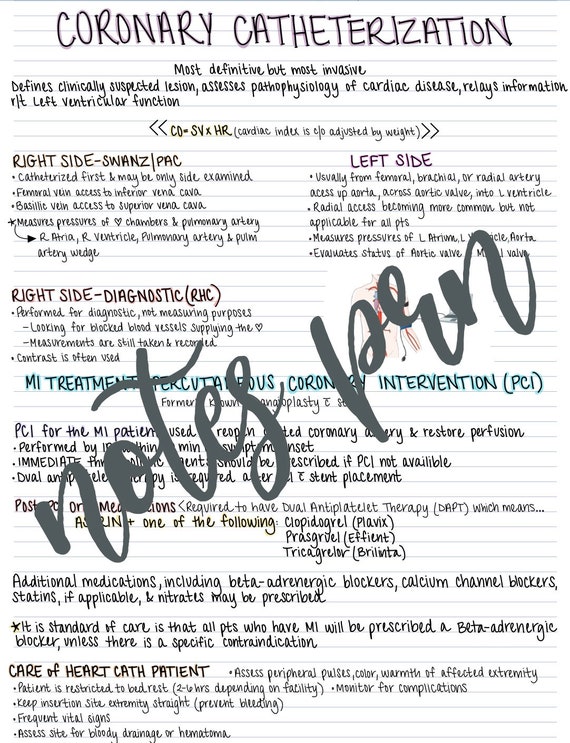 CORONARY CATHETERIZATION
Most definitive but most invasive
Defines clinically suspected lesion, assesses pathophysiology of cardiac disease, relays information
r/t Left ventricular function
<< CO= SV x HR (cardiac index is c/o adjusted by weight) >>
RIGHT SIDE-SWANZ/PAC
• Catheterized first & may be only side examined
• Femoral vein access to inferior vena cava
• Basillic vein access to superior vena cava
*Measures pressures of ♡ chambers & pulmonary artery
→ R. Atria, R. Ventricle, Pulmonary artery & pulm
artery wedge
LEFT SIDE
• Usually from femoral, brachial, or radial artery
acess up aorta, across aortic valve, into L ventricle
• Radial access becoming more common but not
applicable for all pts
• Measures pressures of L Atrium, L Ventricle, Aorta
• Evaluates status of Aortic valve valve
RIGHT SIDE-DIAGNOSTIC (RHC)
• Performed for diagnostic, not measuring purposes
- Looking for blocked blood vessels supplying the ♡
- Measurements are still taken & recorded
• Contrast is often used
notes pen
MI TREATMENT PERCUTANEOUS CORONARY INTERVENTION (PCI)
Formerly known angioplasty c̄
PCI for the MI patient used reopen coronary artery & restore perfusion
• Performed by min symptom onset
• IMMEDIATE should be prescribed if PCI not availible
• Dual antiplatelet therapy is required after c̄ stent placement
Post PCI or Medications <Required to have Dual Antiplatelet Therapy (DAPT) which means...
ASPIRIN + one of the following: Clopidogrel (Plavix)
Prasgruel (Effient)
Tricagrelor (Brilinta)
Additional medications, including beta-adrenergic blockers, calcium channel blockers,
statins, if applicable, & nitrates may be prescribed
*It is standard of care is that all pts who have MI will be prescribed a Beta-adrenergic
blocker, unless there is a specific contraindication
CARE of HEART CATH PATIENT
• Patient is restricted to bed rest (2-6 hrs depending on facility)
• Keep insertion site extremity straight (prevent bleeding)
• Frequent vital signs
• Assess site for bloody drainage or hematoma
• Assess peripheral pulses, color, warmth of affected extremity
• Monitor for complications